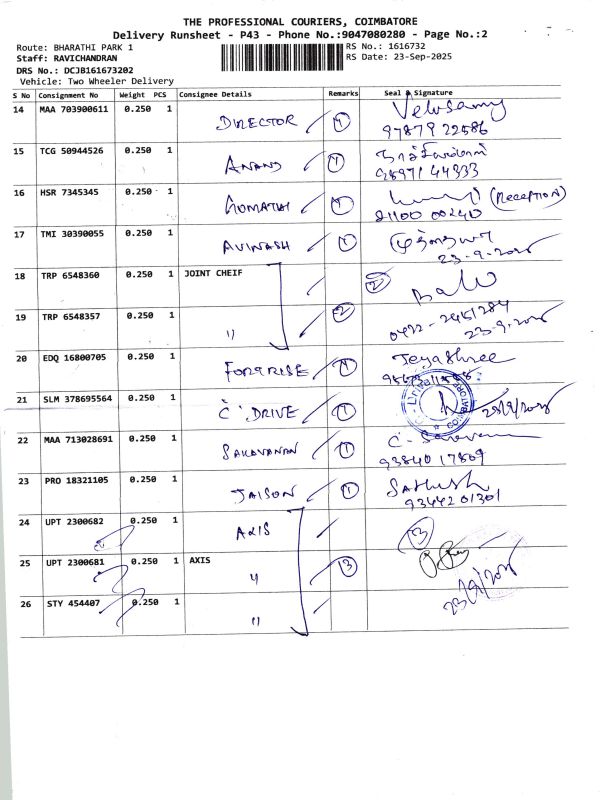 THE PROFESSIONAL COURIERS, COIMBATORE
Delivery Runsheet - P43 - Phone No.:9047080280 - Page No.:2
Route: BHARATHI PARK 1 RS No.: 1616732
Staff: RAVICHANDRAN RS Date: 23-Sep-2025
DRS No.: DCJB161673202
Vehicle: Two Wheeler Delivery
S No Consignment No Weight PCS Consignee Details Remarks Seal & Signature
14 MAA 703900611 0.250 1 DIRECTOR 1 Velusamy
97879 22586
15 TCG 50944526 0.250 1 ANAND 1
98971 44333
16 HSR 7345345 0.250 1 GOMATHI 1 (RECEPTION)
81100 00240
17 TMI 30390055 0.250 1 AVINASH 1
23-9-2025
18 TRP 6548360 0.250 1 JOINT CHEIF 2 Balu
19 TRP 6548357 0.250 1 " 2 0422-2451284
23-9-2025
20 EDQ 16800705 0.250 1 1 Jeyashree
21 SLM 378695564 0.250 1 C' DRIVE 1 23/9/2025
22 MAA 713028691 0.250 1 SARAVANAN 1 C. Saravanan
93840 17809
23 PRO 18321105 0.250 1 JAISON 1 Sathish
9344201301
24 UPT 2300682 0.250 1 AXIS 3
25 UPT 2300681 0.250 1 AXIS " 3
23/9/2025
26 STY 454407 0.250 1 "